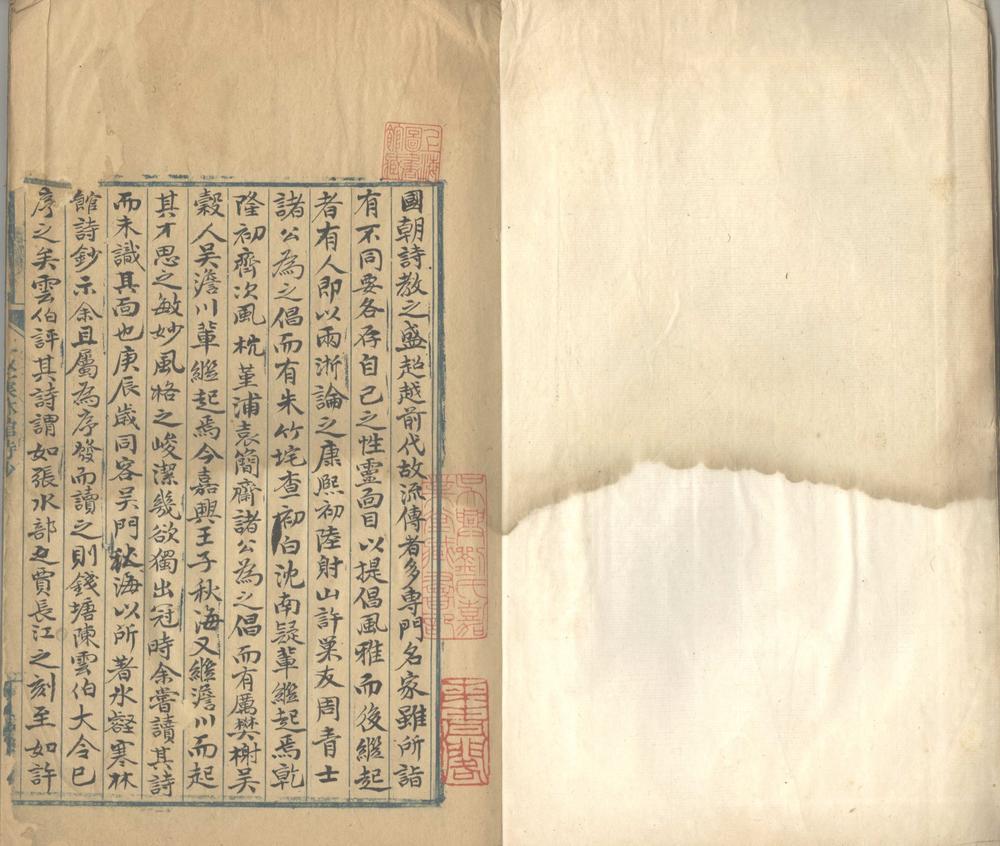 國朝詩教之盛超越前代故流傳者多專門名家雖所詣
有不同要各存自己之性靈面目以提倡風雅而後繼起
者有人即以兩浙論之康熙初陸射山許栗友周青士
諸公為之倡而有朱竹垞查初白沈南疑輩繼起焉乾
隆初齊次風杭堇浦袁簡齋諸公為之倡而有厲樊榭吳
穀人吳澹川輩繼起焉今嘉興王子秋海又繼澹川而起
其才思之敏妙風格之峻潔幾欲獨出冠時余嘗讀其詩
而未識其面也庚辰歲同客吳門秋海以所著冰壑寒林
館詩鈔示余且屬為序發而讀之則錢塘陳雲伯大令已
序之矣雲伯評其詩謂如張水部之賈長江之刻至如許